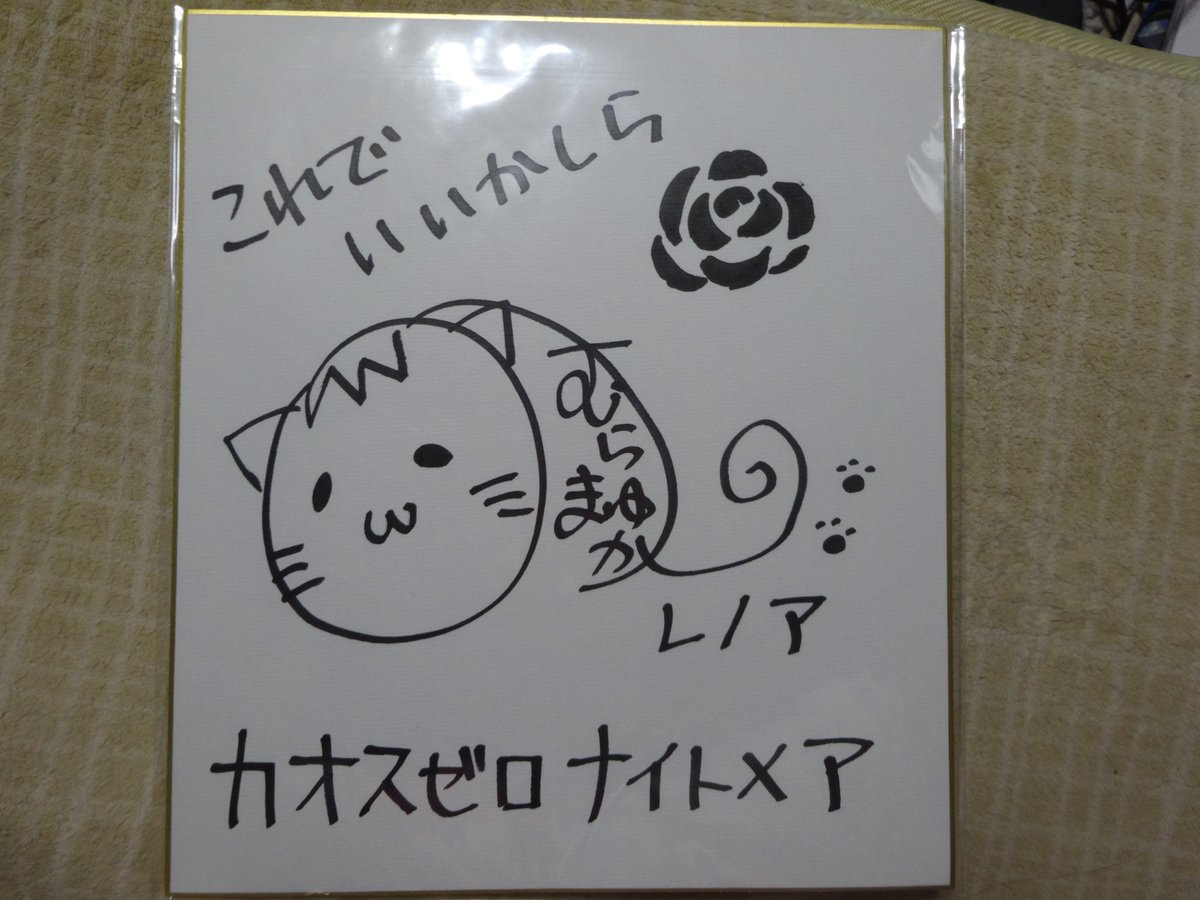 これで
いいかしら
むら
まゆか
レノア
カオスゼロ ナイトメア